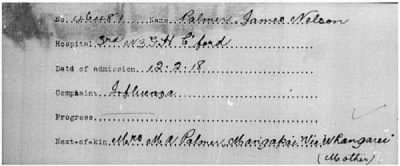 No. 46481 Name. Palmer James Nelson
Hospital 3rd N.Z.G.H. C'ford
Date of admission. 12.2.18
Complaint Influenza
Progress.
Next-of-kin. Mrs M.A. Palmer, Mangapai, Via Whangarei
(Mother)